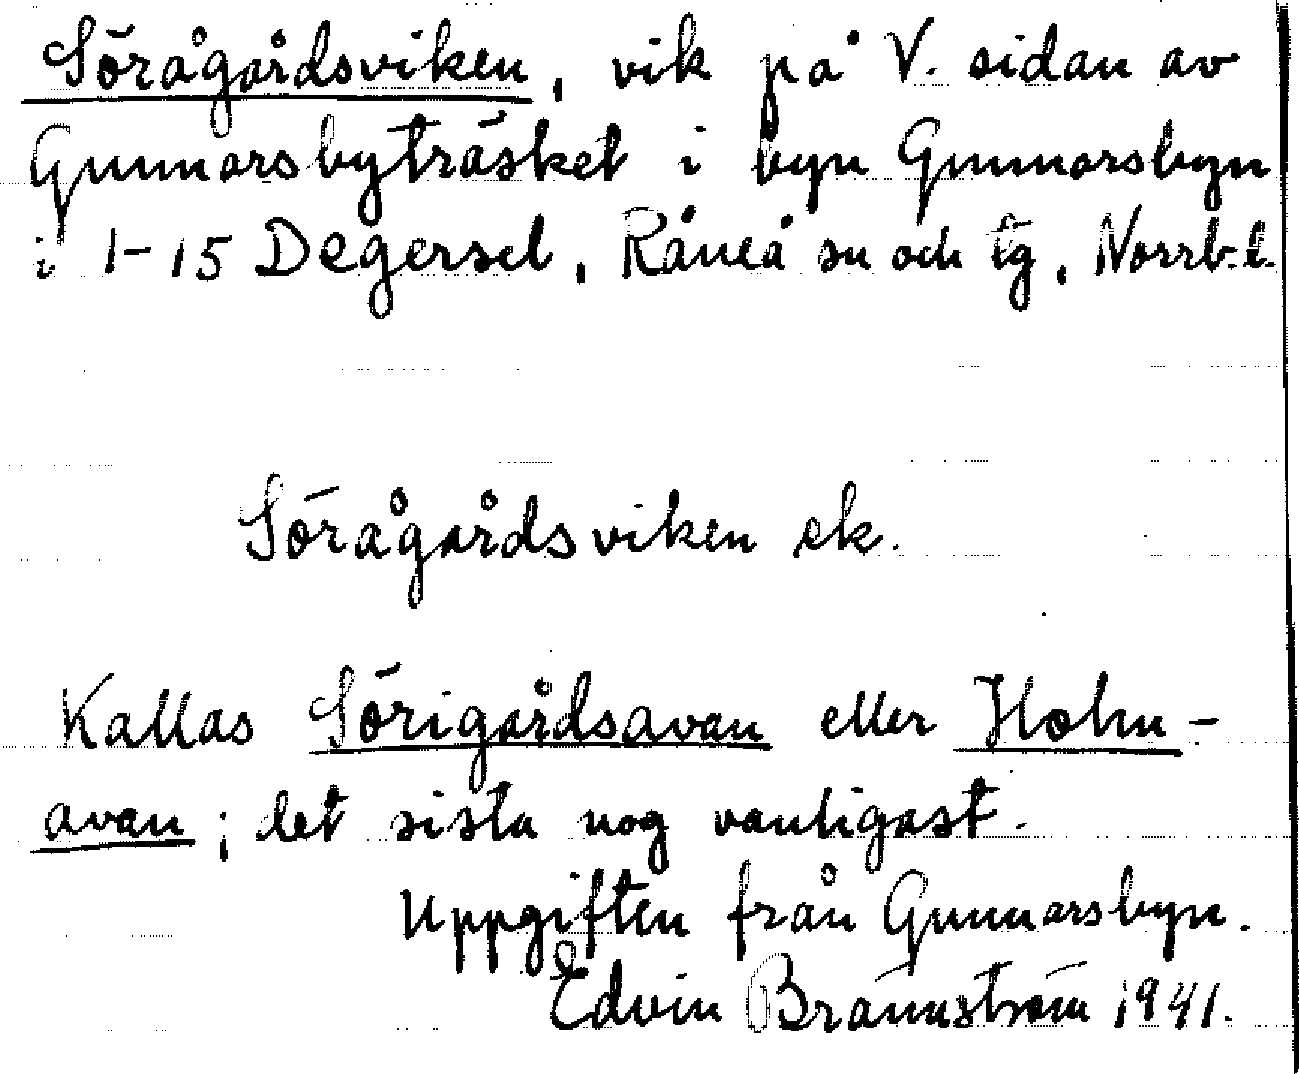 Sörågårdsviken, vik på V. sidan av
Gunnarsbyträsket i byn Gunnarsbyn
i 1-15 Degersel, Råneå sn och tg, Norrb. l.
Sörågårdsviken ek.
Kallas Sörigårdsavan eller Holm-
avan; det sista nog vanligast.
Uppgiften från Gunnarsbyn.
Edvin Brännström 1941.